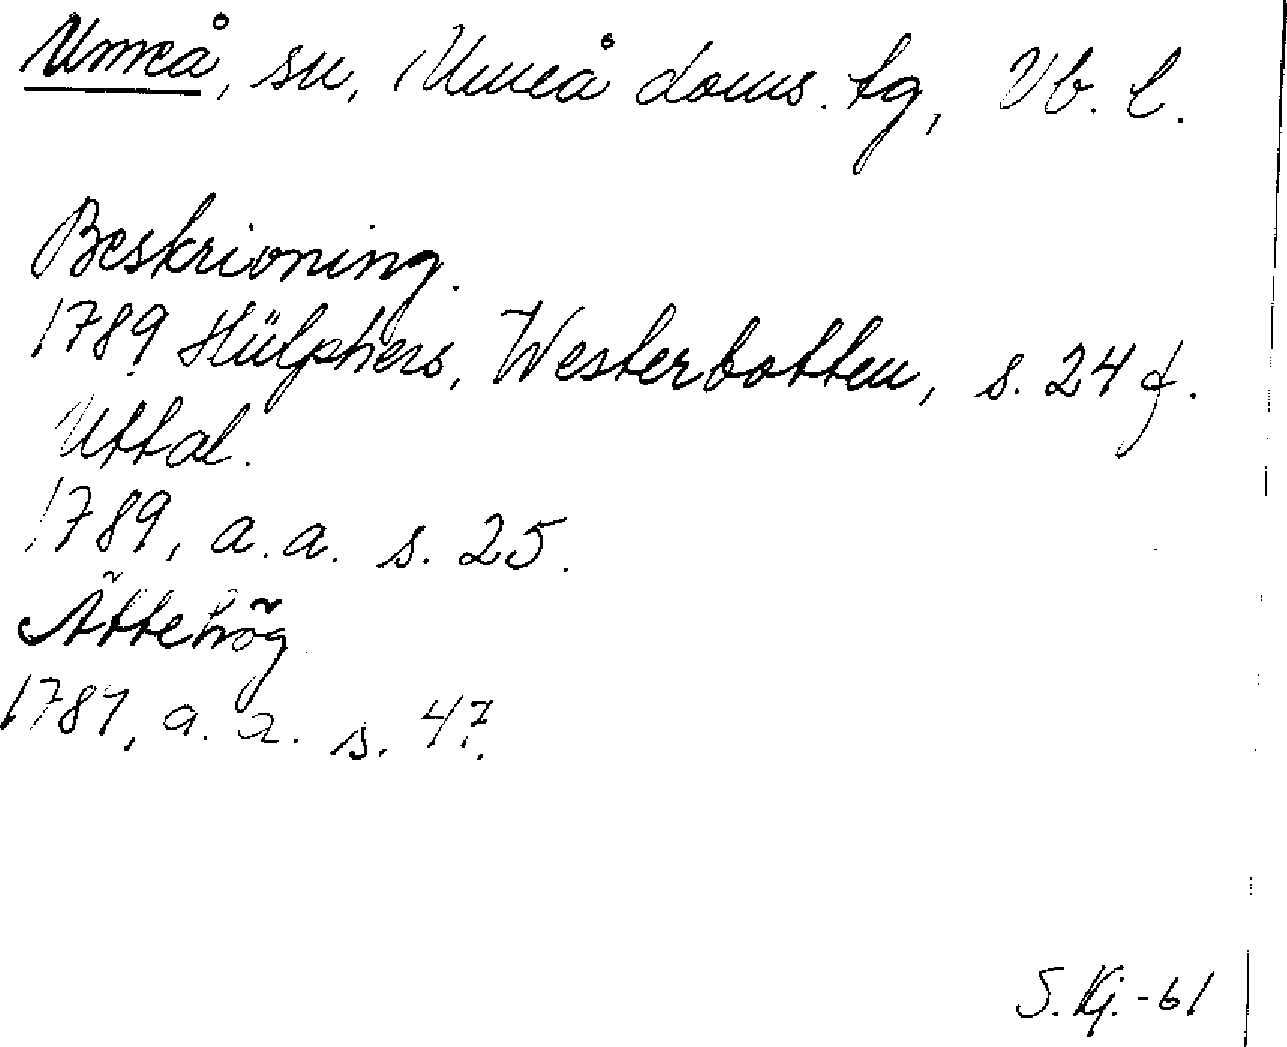 Umeå, sn, Umeå doms. tg, Vb. l.
Beskrivning.
1789 Hülphers, Westerbotten, s. 24 f.
Uttal.
1789, a. a. s. 25.
Ättehög
1789, a. a. s. 47.
S. Kj. -61